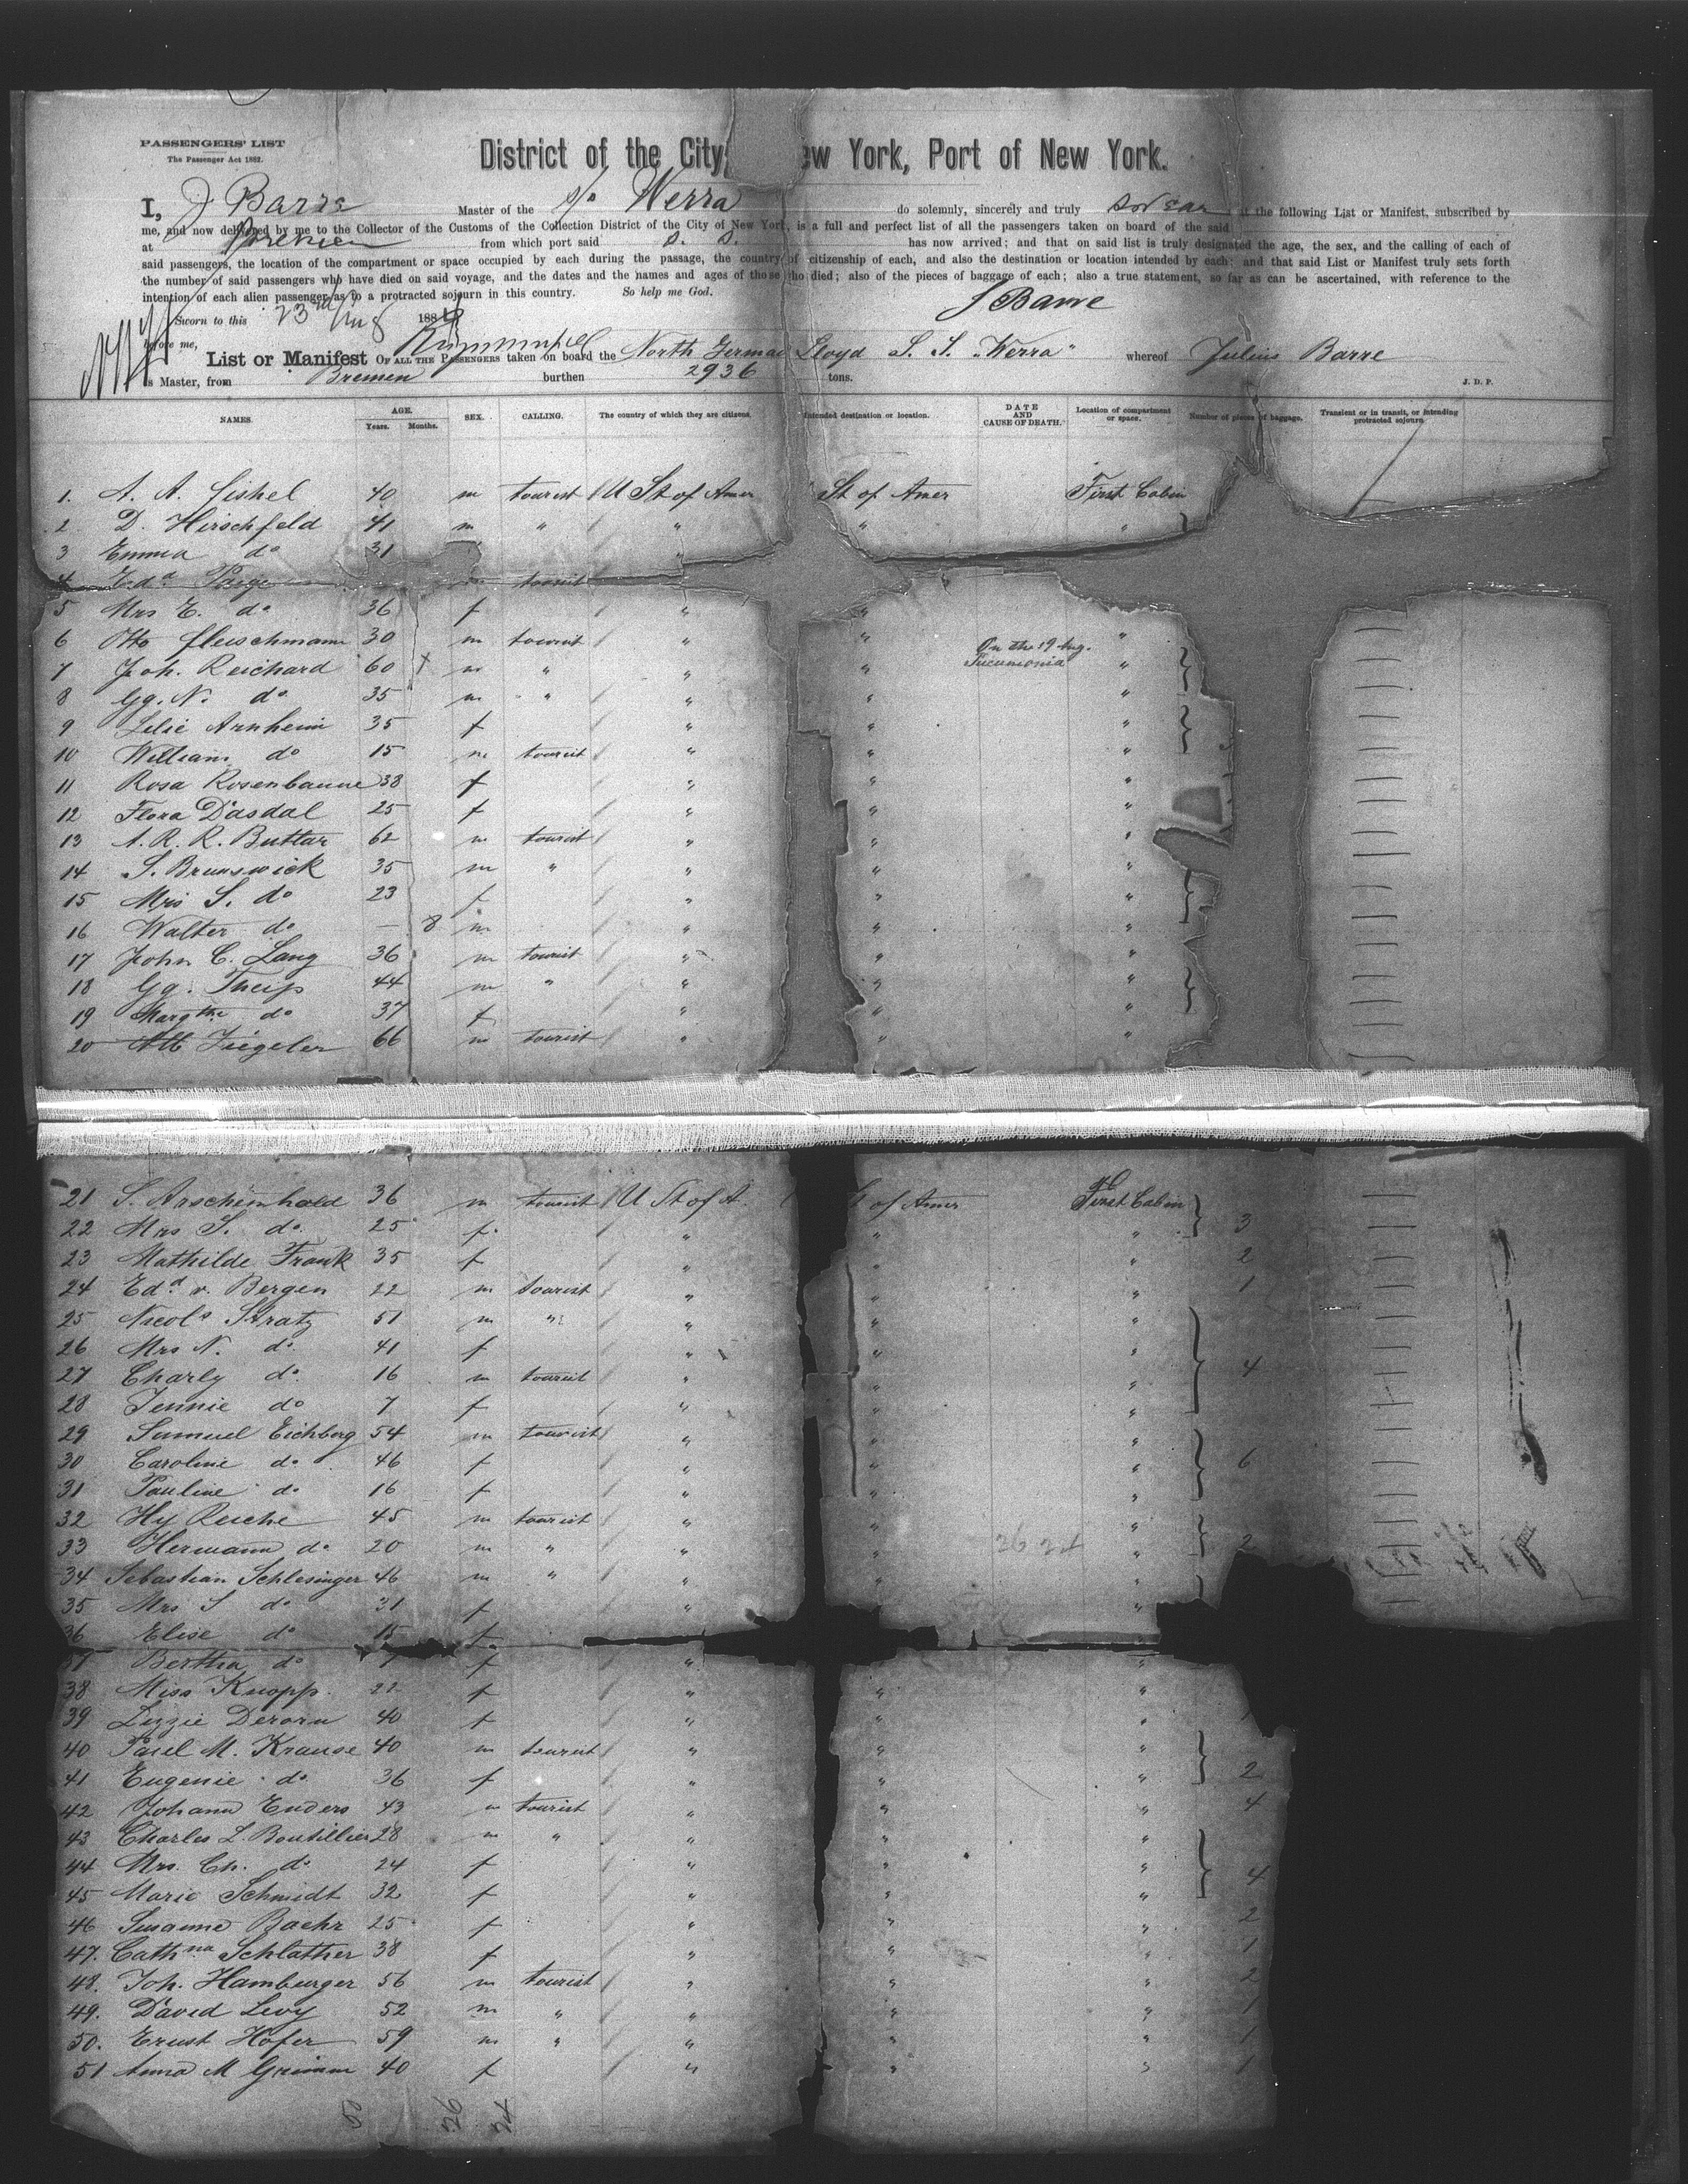 PASSENGERS' LIST
The Passenger Act 1882.
District of the City ew York, Port of New York.
I, J Barre Master of the s/s Werra do solemnly, sincerely and truly swear t the following List or Manifest, subscribed by
me, and now delivered by me to the Collector of the Customs of the Collection District of the City of New York, is a full and perfect list of all the passengers taken on board of the said
at Bremen from which port said S. S. has now arrived; and that on said list is truly designated the age, the sex, and the calling of each of
said passengers, the location of the compartment or space occupied by each during the passage, the country of citizenship of each, and also the destination or location intended by each; and that said List or Manifest truly sets forth
the number of said passengers who have died on said voyage, and the dates and the names and ages of those who died; also of the pieces of baggage of each; also a true statement, so far as can be ascertained, with reference to the
intention of each alien passenger as to a protracted sojourn in this country. So help me God.
J Barre
Sworn to this 23rd Aug 188
before me,
List or Manifest OF ALL THE PASSENGERS taken on board the North German Lloyd S. S. "Werra" whereof Julius Barre
is Master, from Bremen burthen 2936 tons. J. D. P.
NAMES. AGE. Years. Months. SEX. CALLING. The country of which they are citizens. Intended destination or location. DATE AND CAUSE OF DEATH. Location of compartment or space. Number of pieces of baggage. Transient or in transit, or intending protracted sojourn.
1. A. A. Fishel 40 m tourist U St of Amer St of Amer First Cabin
2 D. Hirschfeld 41 m " " " "
3 Emma do 31 "
4 Edd Paige m tourist
5 Mrs E. do 36 f " "
6 Otto Fleischmann 30 m tourist " " "
7 Joh. Reichard 60 m " " " On the 19 Aug. Pneumonia "
8 Gg. N. do 35 m " " " "
9 Lilie Arnheim 35 f " " "
10 William do 15 m tourist " " "
11 Rosa Rosenbaum 38 f " " "
12 Flora Dasdal 25 f " " "
13 A. R. R. Buttar 62 m tourist " " "
14 S. Brunswick 35 m " " " "
15 Mrs S. do 23 f " " "
16 Walter do — 8 m " " "
17 John C. Lang 36 m tourist " " "
18 Gg. Theiss 44 m " " " "
19 Margthe do 37 f " " "
20 Alb Ziegeler 66 m tourist " " "
21 S. Arschenhold 36 m tourist U St of A. of Amer First Cabin
22 Mrs S. do 25 f " " " 3
23 Mathilde Frank 35 f " " " 2
24 Edd v. Bergen 22 m tourist " " " 1
25 Nicols Stratz 51 m " " " "
26 Mrs N. do 41 f " " "
27 Charly do 16 m tourist " " " 4
28 Jennie do 7 f " " "
29 Samuel Eichberg 54 m tourist " " "
30 Caroline do 46 f " " " 6
31 Pauline do 16 f " " "
32 Hy Reiche 45 m tourist " " "
33 Hermann do 20 m " " " " 2
34 Sebastian Schlesinger 46 m " " " "
35 Mrs S do 31 f "
36 Elise do 15 f
37 Bertha do 7 f " "
38 Miss Knopp. 22 f " " "
39 Lizzie Derorn 40 f " " "
40 Paul M. Krause 40 m tourist " " "
41 Eugenie do 36 f " " " 2
42 Johann Enders 43 m tourist " " " 4
43 Charles L. Boutillier 28 m " " " "
44 Mrs. Ch. do 24 f " " " 4
45 Marie Schmidt 32 f " " "
46 Susanne Baehr 25 f " " " 2
47. Cathna Schlather 38 f " " " 1
48. Joh. Hamburger 56 m tourist " " " 2
49. David Levy 52 m " " " " 1
50. Ernst Hofer 59 m " " " " 1
51 Anna M Grimm 40 f " " " 1
50 26 24